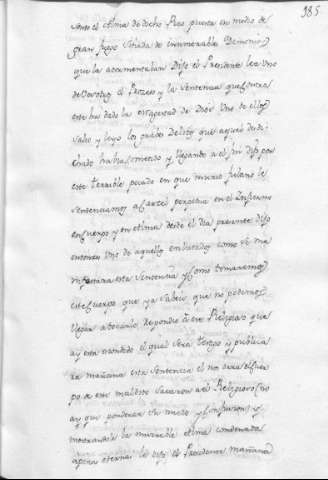 385
vieron el Alma de dicho Reo puesta en medio de
gran fuego sitiada de innumerables Demonios
que la atormentaban Dijo el Presidente lea Uno
de Vosotros el Proceso y la sentencia que contra
este has dado la magestad de Dios Uno de ellos
salio y leyo los grabes Delitos que aquel desdi
chado habia cometido y llegando a el fin dijo por
este terrible pecado en que murio fulano le
sentenciamos a Carcel perpetua en el Infierno
en Cuerpo y en Alma desde el dia presente dijo
entonces Uno de aquellos enlutados como se ma
nifestara esta sentencia y Como tomaremos
este Cuerpo que ya sabeis que no podemos
llegar a tocarlo respondio este Religioso que
ay esta escondido el qual sera testigo y publica
ra mañana esta sentencia el nos dara el Cuer
po de este maldito sacaron a el Religioso (no
ay que ponderar su miedo y Confusion) y
mostrandole la miserable Alma condenada
a pena eterna le dijo el Presidente mañana